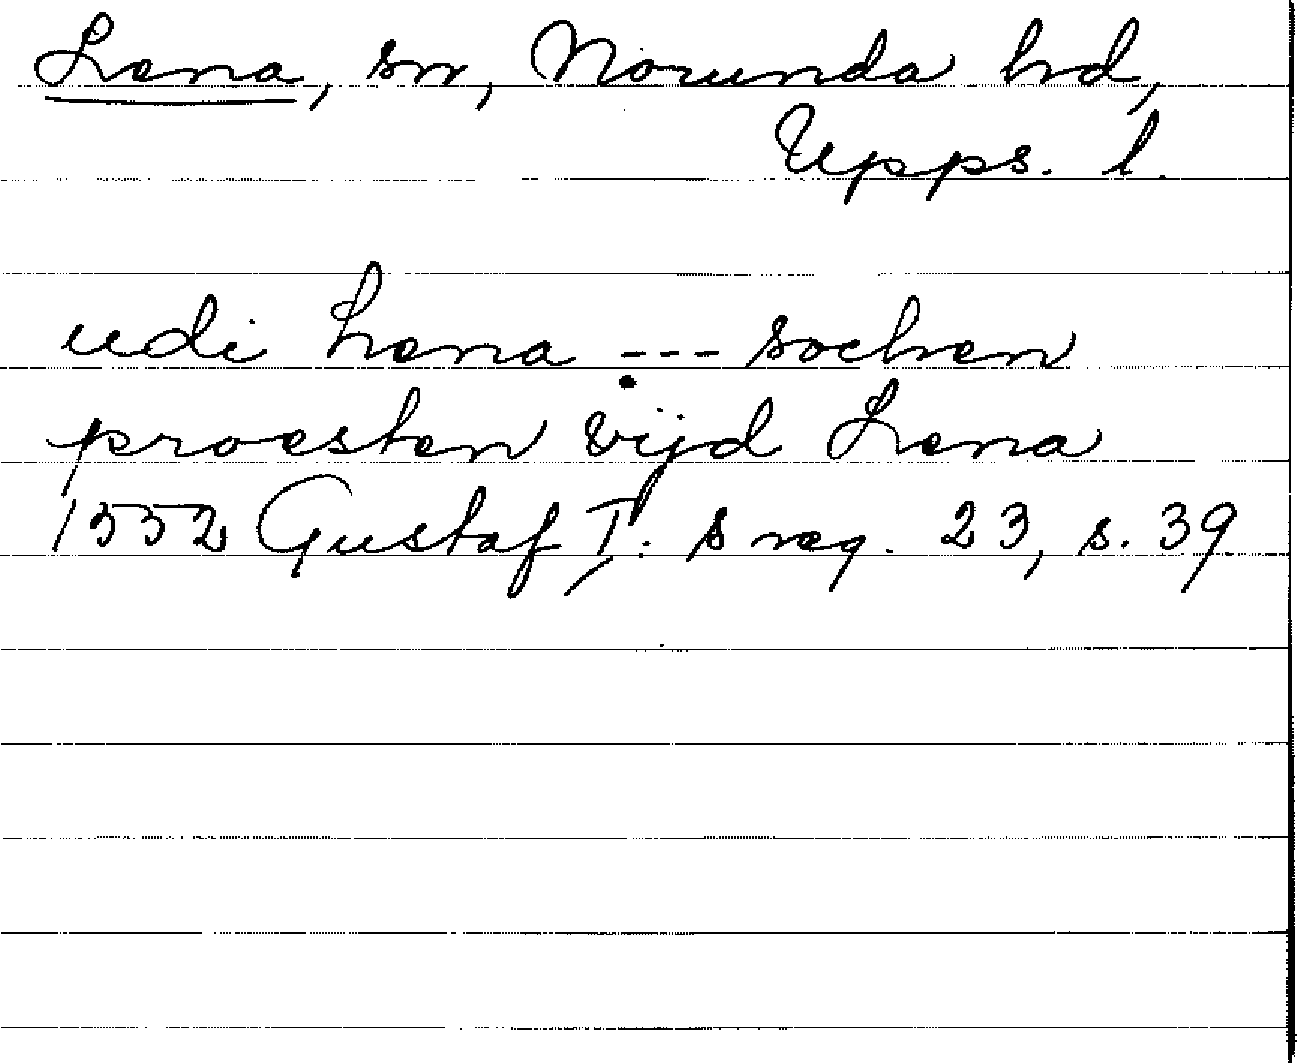 Lena, sn, Norunda hd,
Upps. l.
udi Lena --- sochen
proesten vijd Lena
1552 Gustaf I: s reg. 23, s. 39